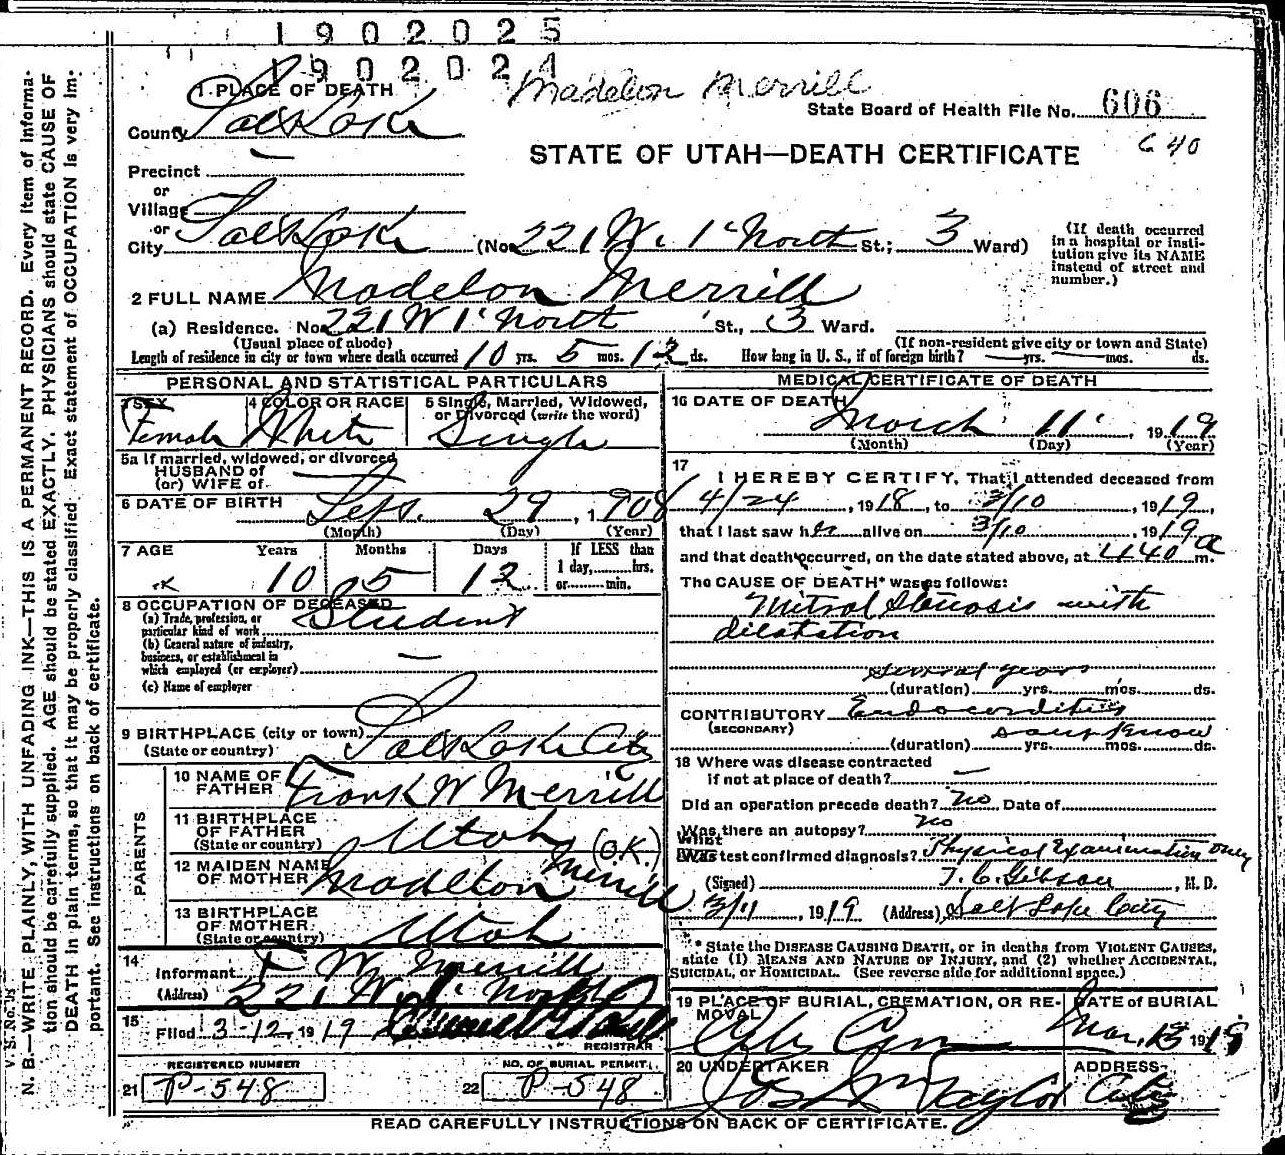 1902025
1902024
Madelon Merrill
1 PLACE OF DEATH
State Board of Health File No. 606
County Salt Lake
C 40
STATE OF UTAH—DEATH CERTIFICATE
Precinct —
or
Village
or
City Salt Lake (No 221 W. 1st North St.; 3 Ward)
(If death occurred in a hospital or institution give its NAME instead of street and number.)
2 FULL NAME Madelon Merrill
(a) Residence. No 221 W 1st North St., 3 Ward.
(Usual place of abode) (If non-resident give city or town and State)
Length of residence in city or town where death occurred 10 yrs. 5 mos. 12 ds. How long in U. S., if of foreign birth? — yrs. — mos. ds.
PERSONAL AND STATISTICAL PARTICULARS
3 SEX Female
4 COLOR OR RACE White
5 Single, Married, Widowed, or Divorced (write the word) Single
5a If married, widowed, or divorced
HUSBAND of
(or) WIFE of —
6 DATE OF BIRTH Sept. 29, 1908
(Month) (Day) (Year)
7 AGE Years Months Days If LESS than
1 day, hrs.
or min.
10 5 12
8 OCCUPATION OF DECEASED
(a) Trade, profession, or
particular kind of work Student
(b) General nature of industry,
business, or establishment in
which employed (or employer) —
(c) Name of employer
9 BIRTHPLACE (city or town) Salt Lake City
(State or country)
PARENTS
10 NAME OF
FATHER Frank W Merrill
11 BIRTHPLACE
OF FATHER
(State or country) Utah
12 MAIDEN NAME
OF MOTHER Madelon Merrill (O.K.)
13 BIRTHPLACE
OF MOTHER
(State or country) Utah
14
Informant F W Merrill
(Address) 221 W 1st North
15 Filed 3-12, 1919
REGISTRAR
REGISTERED NUMBER
21 P-548
NO. OF BURIAL PERMIT
22 P-548
MEDICAL CERTIFICATE OF DEATH
16 DATE OF DEATH
March 11, 1919
(Month) (Day) (Year)
17
I HEREBY CERTIFY, That I attended deceased from
4/24, 1918, to 3/10, 1919,
that I last saw her alive on 3/10, 1919
and that death occurred, on the date stated above, at 4:40 a m.
The CAUSE OF DEATH* was as follows:
Mitral Stenosis with
dilatation
several years
(duration) yrs. mos. ds.
CONTRIBUTORY Endocarditis
(SECONDARY)
don't know
(duration) yrs. mos. ds.
18 Where was disease contracted
if not at place of death? —
Did an operation precede death? No Date of
Was there an autopsy? no
What
Was test confirmed diagnosis? Physical Examination only
(Signed) T. C. Gibson, M. D.
3/11, 1919 (Address) Salt Lake City
* State the DISEASE CAUSING DEATH, or in deaths from VIOLENT CAUSES,
state (1) MEANS AND NATURE OF INJURY, and (2) whether ACCIDENTAL,
SUICIDAL, or HOMICIDAL. (See reverse side for additional space.)
19 PLACE OF BURIAL, CREMATION, OR REMOVAL City Cem
DATE OF BURIAL Mar. 13 1919
20 UNDERTAKER Jos Wm Taylor
ADDRESS City
READ CAREFULLY INSTRUCTIONS ON BACK OF CERTIFICATE.
V. S. No.
N. B.—WRITE PLAINLY, WITH UNFADING INK—THIS IS A PERMANENT RECORD. Every item of informa-
tion should be carefully supplied. AGE should be stated EXACTLY. PHYSICIANS should state CAUSE OF
DEATH in plain terms, so that it may be properly classified. Exact statement of OCCUPATION is very im-
portant. See instructions on back of certificate.